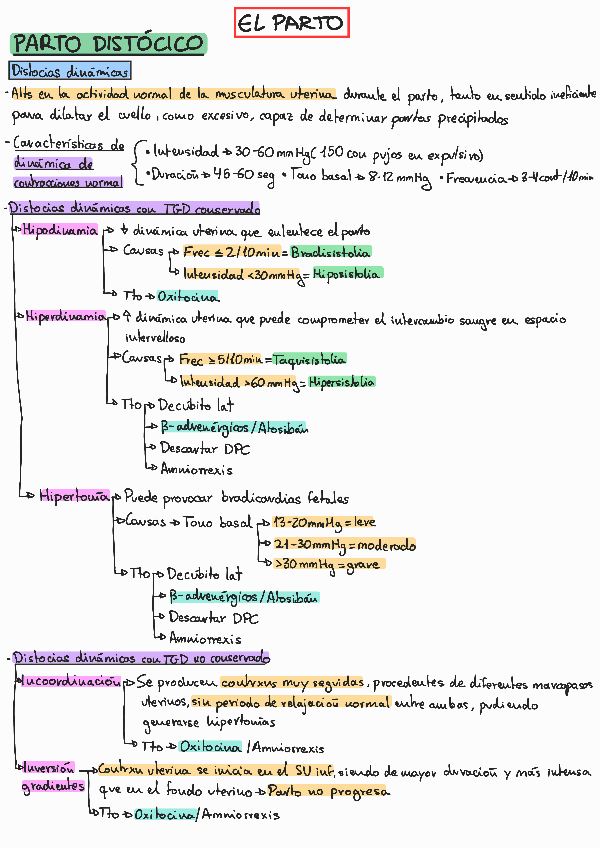 EL PARTO
PARTO DISTÓCICO
Distocias dinámicas
- Alts en la actividad normal de la musculatura uterina durante el parto, tanto en sentido ineficiente
para dilatar el cuello, como excesivo, capaz de determinar partos precipitados
- Características de
dinámica de
contracciones normal
• Intensidad → 30-60 mmHg (150 con pujos en expulsivo)
• Duración → 46-60 seg • Tono basal → 8-12 mmHg • Frecuencia → 3-4 cont/10 min
- Distocias dinámicas con TGD conservado
→ Hipodinamia → ↓ dinámica uterina que enlentece el parto
→ Causas → Frec ≤ 2/10 min = Bradisistolia
→ Intensidad < 30 mmHg = Hiposistolia
→ Tto → Oxitocina
→ Hiperdinamia → ↑ dinámica uterina que puede comprometer el intercambio sangre en espacio
intervelloso
→ Causas → Frec ≥ 5/10 min = Taquisistolia
→ Intensidad > 60 mmHg = Hipersistolia
→ Tto → Decúbito lat
→ β-adrenérgicos/Atosibán
→ Descartar DPC
→ Amniorrexis
→ Hipertonía → Puede provocar bradicardias fetales
→ Causas → Tono basal → 13-20 mmHg = leve
→ 21-30 mmHg = moderado
→ >30 mmHg = grave
→ Tto → Decúbito lat
→ β-adrenérgicos/Atosibán
→ Descartar DPC
→ Amniorrexis
- Distocias dinámicas con TGD no conservado
→ Incoordinación → Se producen contrxns muy seguidas, procedentes de diferentes marcapasos
uterinos, sin periodo de relajación normal entre ambas, pudiendo
generarse hipertonías
→ Tto → Oxitocina / Amniorrexis
→ Inversión → Contrxn uterina se inicia en el SU inf, siendo de mayor duración y más intensa
gradientes que en el fondo uterino → Parto no progresa
→ Tto → Oxitocina/Amniorrexis